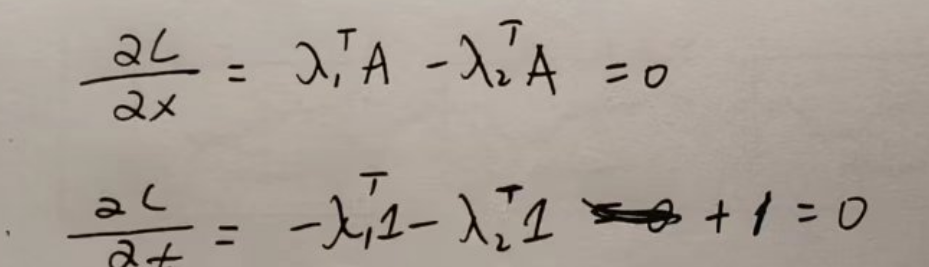 ∂L/∂x = λ₁ᵀA - λ₂ᵀA = 0
∂L/∂t = -λ₁ᵀ1 - λ₂ᵀ1 + 1 = 0